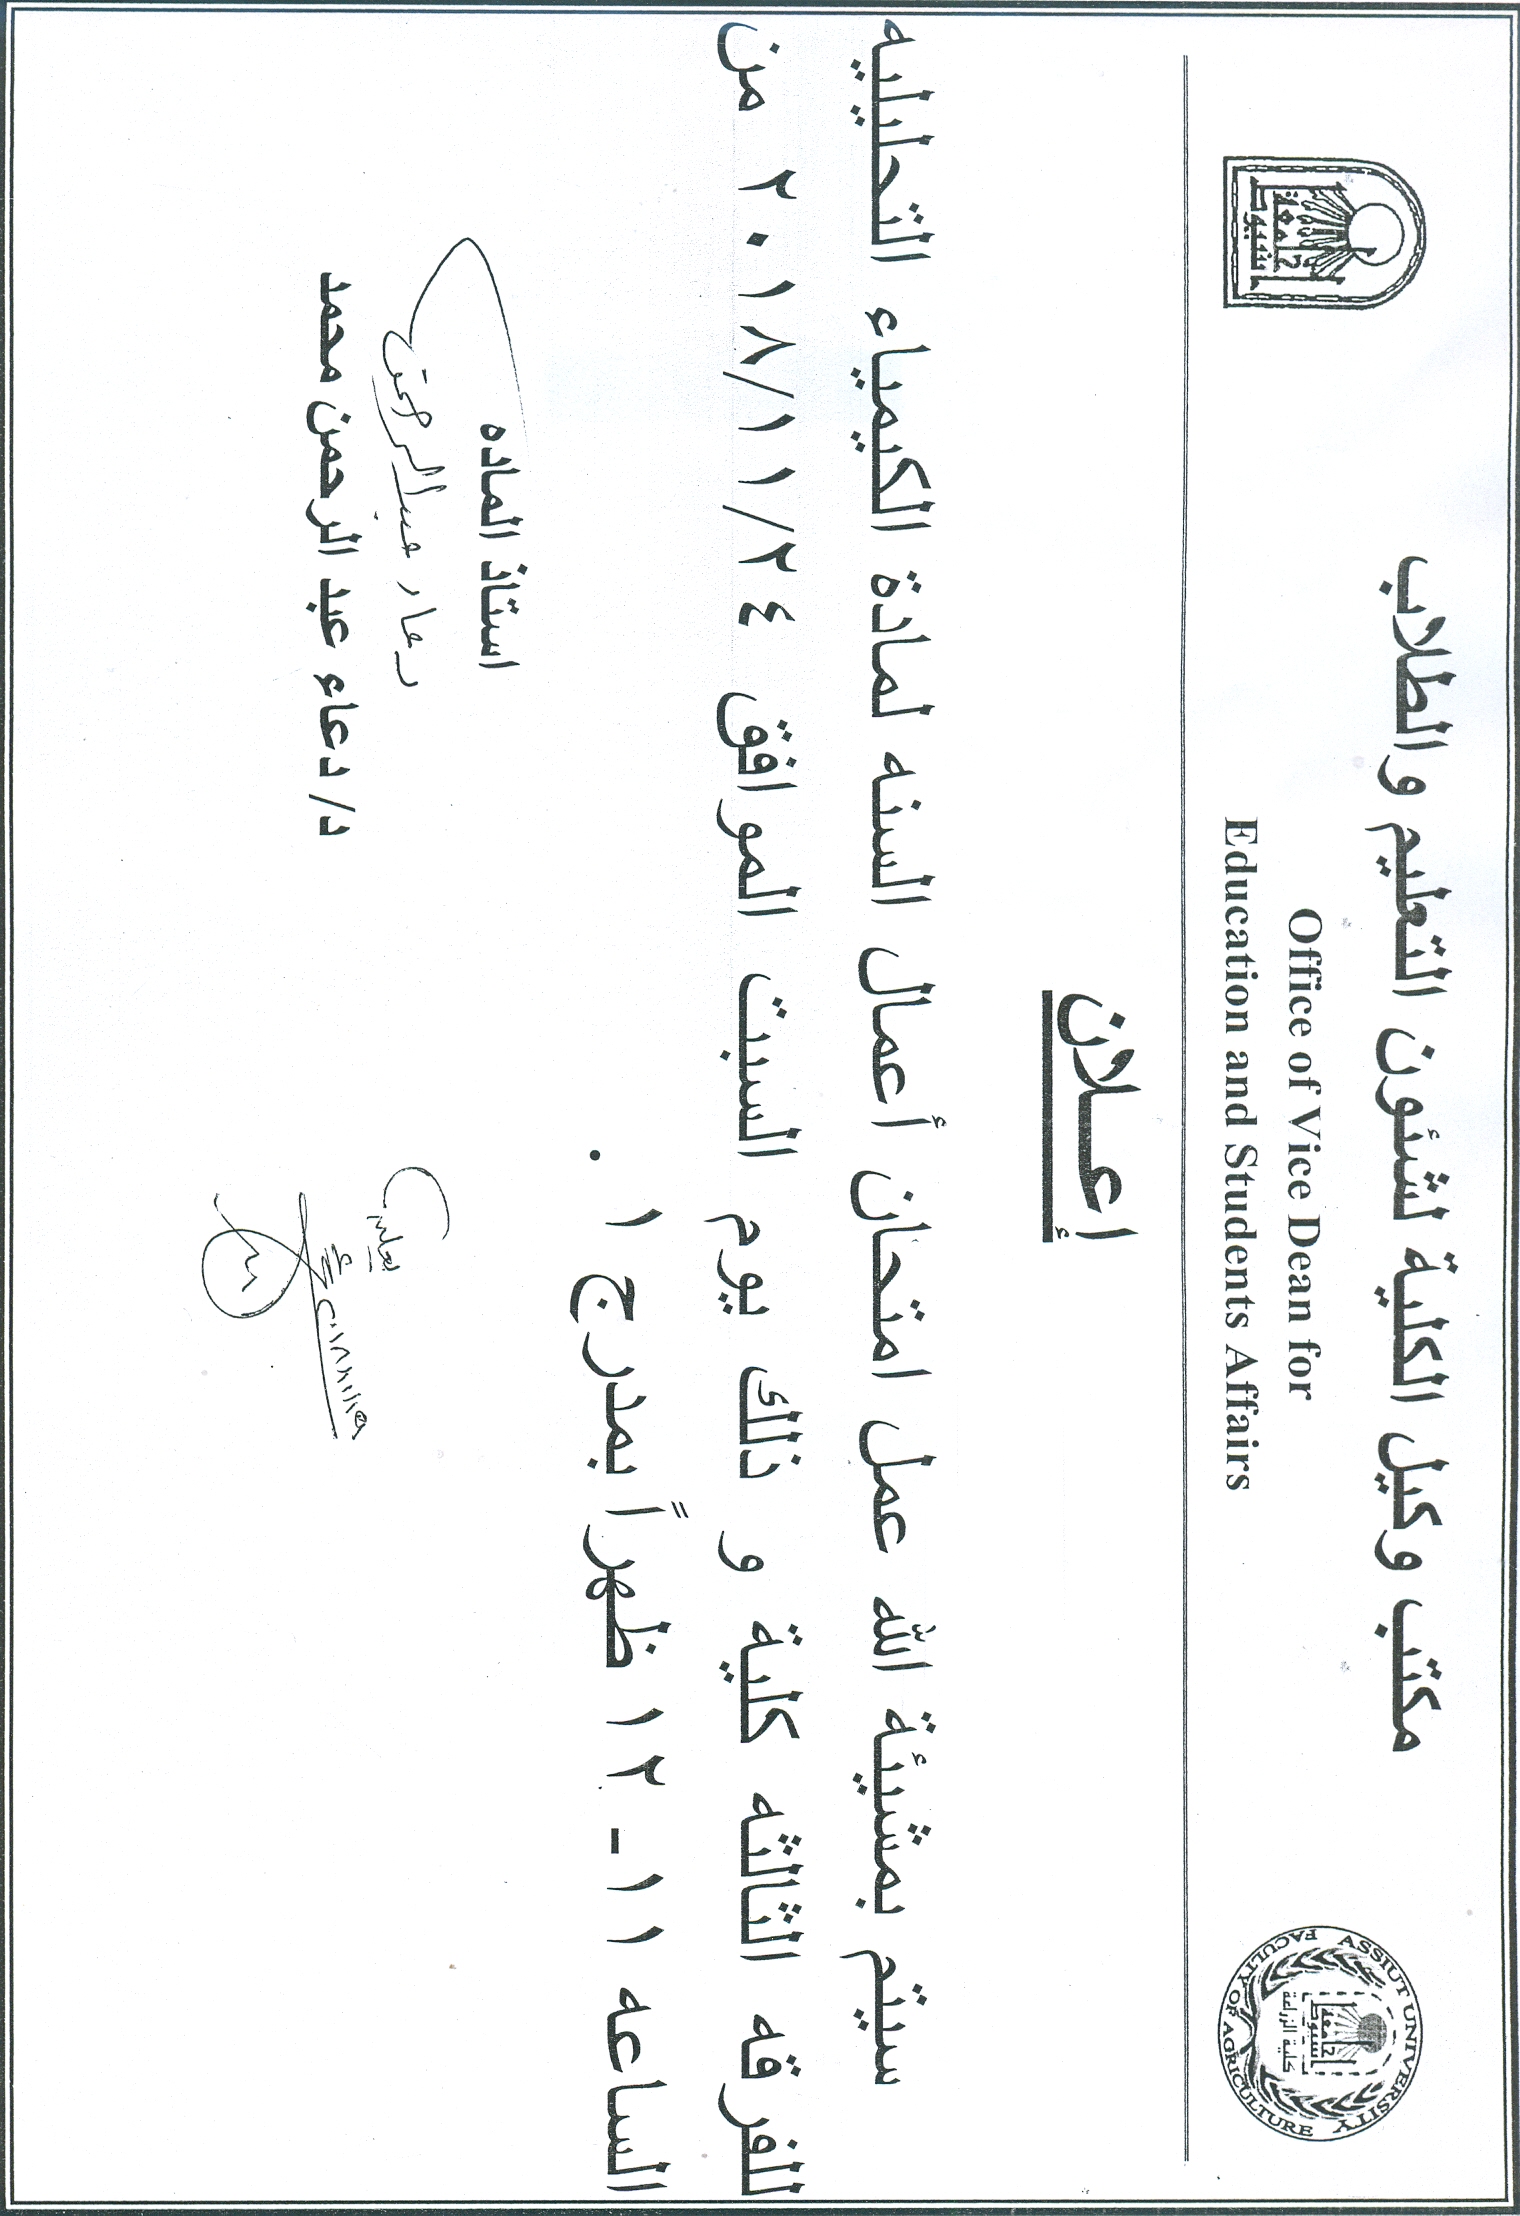 مكتب وكيل الكلية لشئون التعليم والطلاب
Office of Vice Dean for
Education and Students Affairs
ASSIUT UNIVERSITY
FACULTY OF AGRICULTURE
جامعة
أسيوط
كلية الزراعة
جامعة
أسيوط
إعلان
سيتم بمشيئة الله عمل امتحان أعمال السنه لمادة الكيمياء التحليليه
للفرقه الثالثه كلية و ذلك يوم السبت الموافق ٢٠١٨/١١/٢٤ من
الساعه ١١ - ١٢ ظهراً بمدرج ١ .
استاذ الماده
دعاء عبد الرحمن
د/ دعاء عبد الرحمن محمد